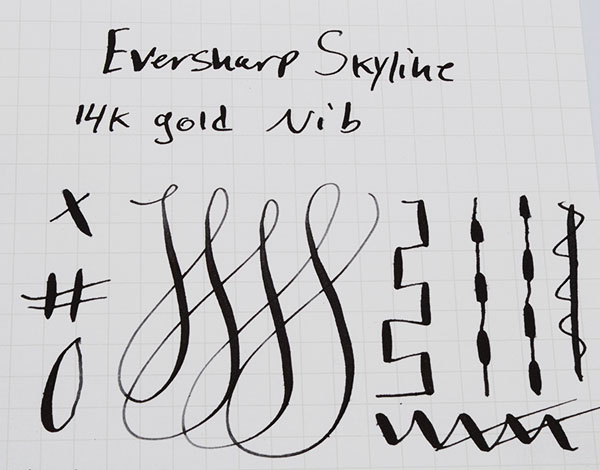 Eversharp Skyline
14K gold Nib
X
#
0